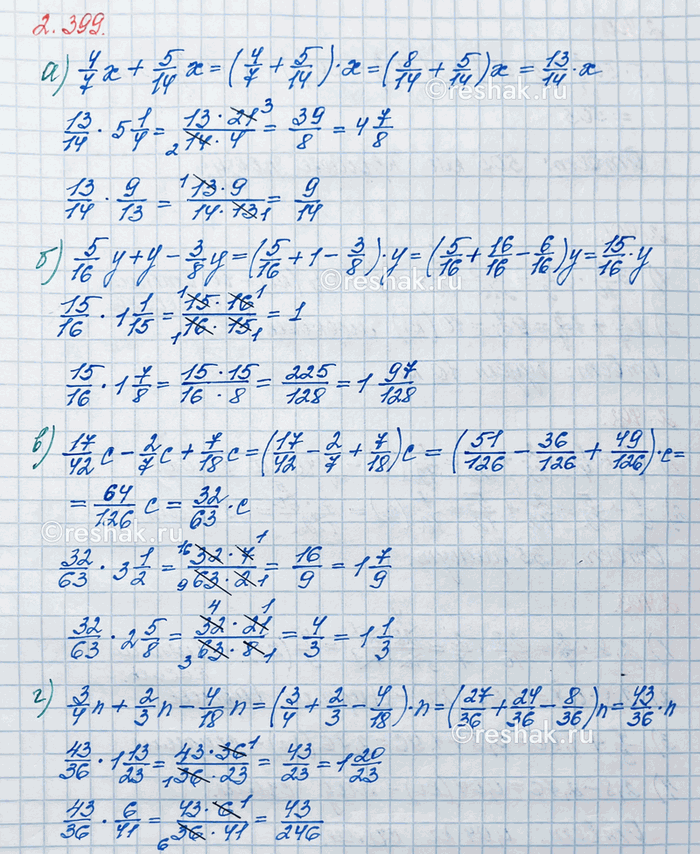 2.399.
а) 4/7 x + 5/14 x = (4/7 + 5/14) · x = (8/14 + 5/14) x = 13/14 · x
13/14 · 5 1/4 = 13 · 21 3 / 2 14 · 4 = 39/8 = 4 7/8
13/14 · 9/13 = 1 13 · 9 / 14 · 13 1 = 9/14
б) 5/16 y + y − 3/8 y = (5/16 + 1 − 3/8) · y = (5/16 + 16/16 − 6/16) y = 15/16 · y
15/16 · 1 1/15 = 1 15 · 16 1 / 1 16 · 15 1 = 1
15/16 · 1 7/8 = 15 · 15 / 16 · 8 = 225/128 = 1 97/128
в) 17/42 c − 2/7 c + 7/18 c = (17/42 − 2/7 + 7/18) c = (51/126 − 36/126 + 49/126) · c =
= 64/126 c = 32/63 · c
32/63 · 3 1/2 = 16 32 · 7 1 / 9 63 · 2 1 = 16/9 = 1 7/9
32/63 · 2 5/8 = 4 32 · 21 1 / 3 63 · 8 1 = 4/3 = 1 1/3
г) 3/4 n + 2/3 n − 4/18 n = (3/4 + 2/3 − 4/18) · n = (27/36 + 24/36 − 8/36) n = 43/36 · n
43/36 · 1 13/23 = 43 · 36 1 / 1 36 · 23 = 43/23 = 1 20/23
43/36 · 6/41 = 43 · 6 1 / 6 36 · 41 = 43/246
©reshak.ru
©reshak.ru
©reshak.ru
©reshak.ru
©reshak.ru